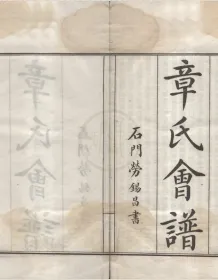 章氏會譜
石門勞錫昌書